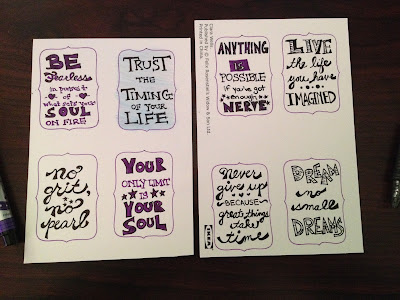 BE
Fearless
in pursuit
of
what sets your
SOUL
ON FIRE
TRUST
THE
TIMING
OF YOUR
LIFE
no
grit,
no
pearl
YOUR
ONLY LIMIT
IS
YOUR
SOUL
Clara Wells
Published by © Felix Rosenstiel's Widow & Son Ltd.
Printed in China.
ANYTHING
IS
POSSIBLE
IF YOU'VE GOT
enough
NERVE
LIVE
the life
you have
IMAGINED
never
give up
BECAUSE
great things
take
time
DREAM
no
small
DREAMS
IKEA